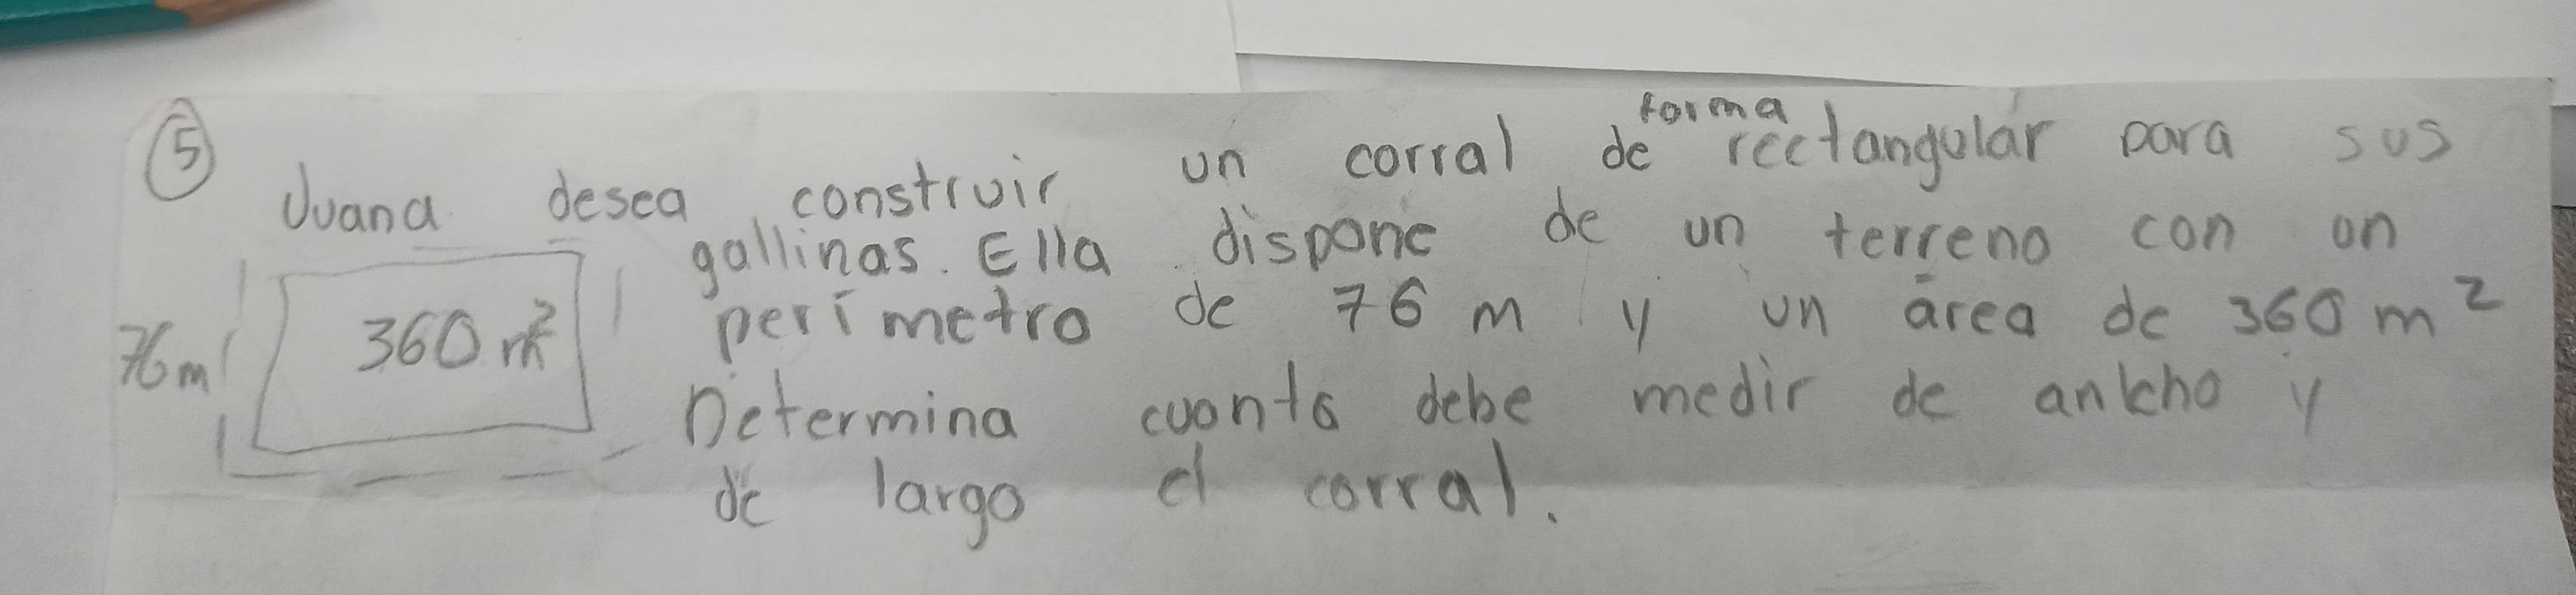 5
Juana desea construir un corral de forma rectangular para sus
gallinas. Ella dispone de un terreno con un
perímetro de 76 m y un área de 360 m²
Determina cuanto debe medir de ankho y
de largo el corral.
76m
360 m²